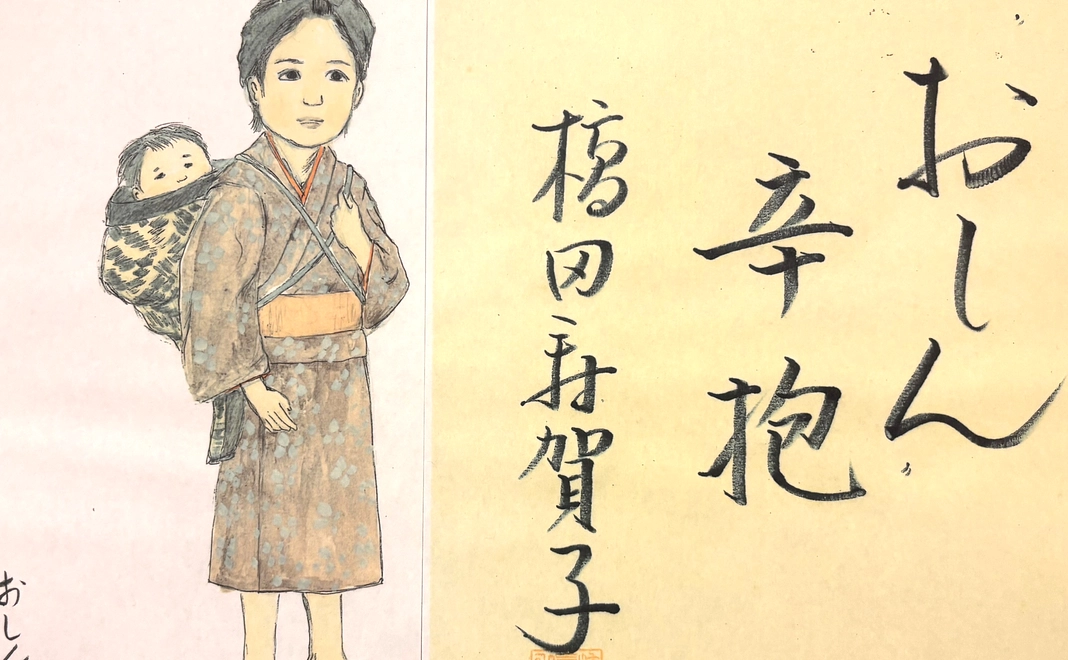 おしん
辛抱
橋田寿賀子
おしん